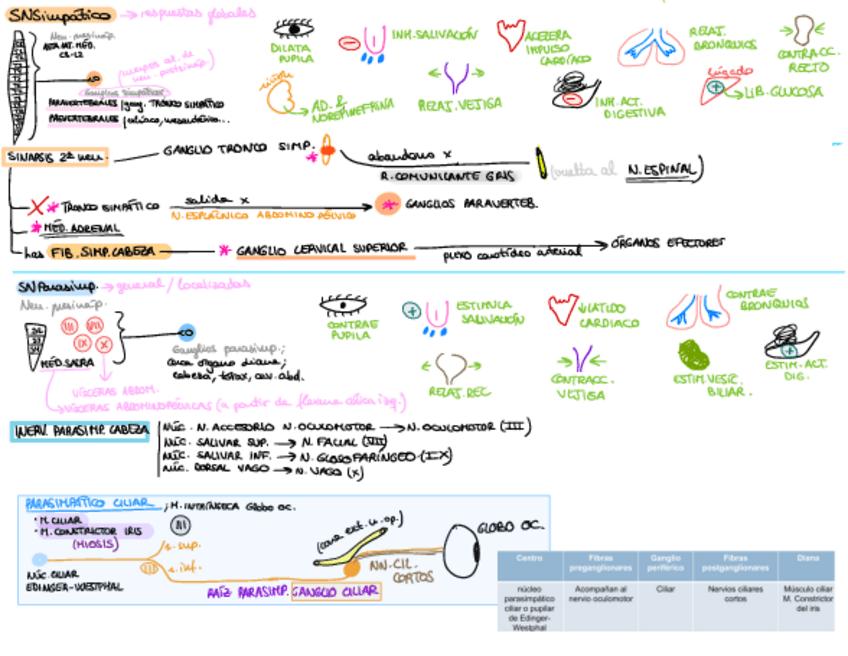 SNSimpático → respuestas globales
Neu. presinap.
ASTA INT. MÉD.
C8-L2
(cuerpos al. de neu. postsinap.)
Ganglios simpáticos
PARAVERTEBRALES / gang. TRONCO SIMPÁTICO
PREVERTEBRALES / celíaco, mesentérico...
DILATA PUPILA
INH. SALIVACIÓN
ACELERA IMPULSO CARDÍACO
RELAJ. BRONQUIOS
CONTRACC. RECTO
riñón
AD. & NOREPINEFRINA
RELAJ. VEJIGA
INH. ACT. DIGESTIVA
hígado
LIB. GLUCOSA
SINAPSIS 2ª neu.
GANGLIO TRONCO SIMP.
abandono x
R. COMUNICANTE GRIS
(vuelta al N. ESPINAL)
TRONCO SIMPÁTICO
salida x
N. ESPLÁCNICO ABDOMINO PÉLVICO
GANGLIOS PARAVERTEB.
MÉD. ADRENAL
las FIB. SIMP. CABEZA
GANGLIO CERVICAL SUPERIOR
plexo carotídeo arterial
ÓRGANOS EFECTORES
SNParasimp. → general / localizadas
Neu. presinap.
III VII
IX X
S2
S3
S4
MÉD. SACRA
Ganglios parasimp.;
cerca órgano diana;
cabeza, tórax, cav. abd.
VÍSCERAS ABDOM.
VÍSCERAS ABDOMINOPÉLVICAS (a partir de flexura cólica izq.)
CONTRAE PUPILA
ESTIMULA SALIVACIÓN
↓ LATIDO CARDIACO
CONTRAE BRONQUIOS
RELAJ. REC.
CONTRACC. VEJIGA
ESTIM. VESÍC. BILIAR.
ESTIM. ACT. DIG.
INERV. PARASIMP. CABEZA
NÚC. N. ACCESORIO N. OCULOMOTOR → N. OCULOMOTOR (III)
NÚC. SALIVAR SUP. → N. FACIAL (VII)
NÚC. SALIVAR INF. → N. GLOSOFARÍNGEO (IX)
NÚC. DORSAL VAGO → N. VAGO (X)
PARASIMPÁTICO CILIAR ; M. INTRÍNSECA Globo OC.
· M. CILIAR
· M. CONSTRICTOR IRIS
(MIOSIS)
III
r. sup.
r. inf.
III
NÚC. CILIAR
EDINGER-WESTPHAL
RAÍZ PARASIMP. GANGLIO CILIAR
(cara ext. n. op.)
NN. CIL. CORTOS
GLOBO OC.
Centro Fibras preganglionares Ganglio periférico Fibras postganglionares Diana
núcleo parasimpático ciliar o pupilar de Edinger-Westphal Acompañan al nervio oculomotor Ciliar Nervios ciliares cortos Músculo ciliar M. Constrictor del iris